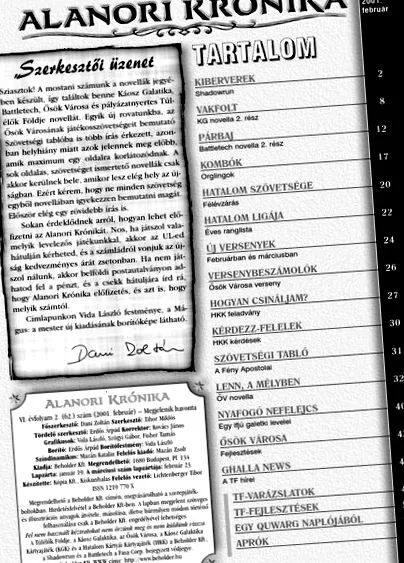 ALANORI KRÓNIKA
2001.
február
Szerkesztői üzenet
Sziasztok! A mostani számunk a novellák jegyé-
ben készült, így találtok benne Káosz Galaktika,
Battletech, Ősök Városa és pályázatnyertes Túl-
élők Földje novellát. Egyik új rovatunkba, az
Ősök Városának játékosszövetségeit bemutató
Szövetségi tablóba is több írás érkezett, azon-
ban helyhiány miatt azok jelennek meg előbb,
amik maximum egy oldalra korlátozódnak. A
sok oldalas, szövetséget ismertető novellák csak
akkor kerülnek bele, amikor lesz elég hely az új-
ságban. Ezért kérem, hogy ne minden szövetség
egyből novellában igyekezzen bemutatni magát.
Először elég egy rövidebb írás is.
Sokan érdeklődnek arról, hogyan lehet elő-
fizetni az Alanori Krónikát. Nos, ha játszol vala-
melyik levelezős játékunkkal, akkor az UL-ed
hátulján kérheted, és a számládról vonjuk az új-
ság kedvezményes árát zsetonban. Ha nem ját-
szol nálunk, akkor belföldi postautalványon ad-
hatod fel a pénzt, és a csekk hátuljára írd rá,
hogy Alanori Krónika előfizetés, és azt is, hogy
melyik számtól.
Címlapunkon Vida László festménye, a Má-
gus: a mester új kiadásának borítóképe látható.
Dani Zoltán
TARTALOM
KIBERVEREK 2
Shadowrun
VAKFOLT 8
KG novella 2. rész
PÁRBAJ 12
Battletech novella 2. rész
KOMBÓK 17
Orglingok
HATALOM SZÖVETSÉGE 20
Félévzárás
HATALOM LIGÁJA 22
Éves ranglista
ÚJ VERSENYEK 24
Februárban és márciusban
VERSENYBESZÁMOLÓK 26
Ősök Városa verseny
HOGYAN CSINÁLJAM? 27
HKK feladvány
KÉRDEZZ-FELELEK 30
HKK kérdések
SZÖVETSÉGI TABLÓ 31
A Fény Apostolai
LENN, A MÉLYBEN 32
ŐV novella
NYAFOGÓ NEFELEJCS
Egy ifjú galetki levelei
ŐSÖK VÁROSA
Fejlesztések
GHALLA NEWS
A TF hírei
TF-VARÁZSLATOK
TF-FEJLESZTÉSEK
EGY QUWARG NAPLÓJÁBÓL
APRÓK
ALANORI KRÓNIKA
VI. évfolyam 2. (62.) szám (2001. február) – Megjelenik havonta
Főszerkesztő: Dani Zoltán Szerkesztő: Tihor Miklós
Tördelő szerkesztő: Erdős Árpád Korrektor: Kovács János
Grafikusok: Vida László, Szűgyi Gábor, Fisher Tamás
Borító: Erdős Árpád Borítófestmény: Vida László
Színdinamikus: Mazán Katalin Felelős kiadó: Mazán Zsolt
Kiadja: Beholder Kft. Megrendelhető: 1680 Budapest, Pf. 134
Lapzárta: január 19. A márciusi szám lapzártája: február 23.
Készítette: Kópia Kft., Kiskunhalas Felelős vezető: Lichtenberger Tibor
ISSN 1219 770 X
Megrendelhető a Beholder Kft. címén, megvásárolható a szerepjáték-
boltokban. Hirdetésfelvétel a Beholder Kft-ben. A lapban megjelent szöveges
és illusztrációs anyagok átvétele, másolása, illetve bármilyen módon történő
felhasználása csak a Beholder Kft. engedélyével lehetséges.
Fel nem használt kéziratokat nem őrzünk meg és nem küldünk vissza.
A Túlélők Földje, a Káosz Galaktika, az Ősök Városa, a Káosz Galaktika
Kártyajáték (KGK) és a Hatalom Kártyái Kártyajáték (HKK) a Beholder Kft.,
a Shadowrun és a Battletech a Fasa Corp. bejegyzett védjegye.
http://www.beholder.hu